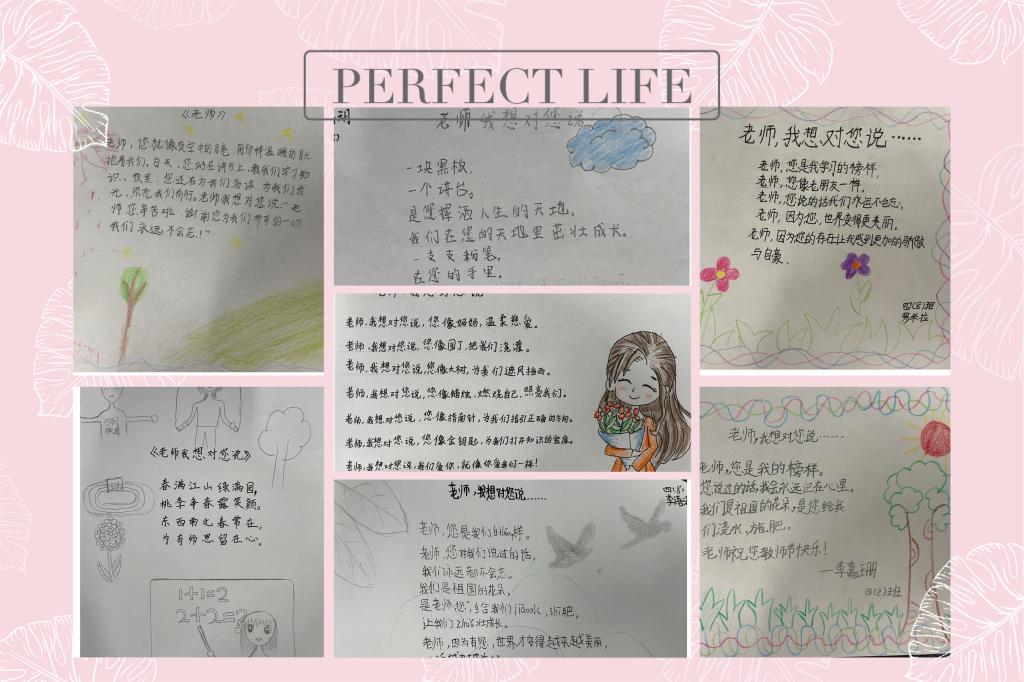 PERFECT LIFE
《老师》
老师，您就像夜空中的月亮，用那样温暖的月光
照着我们。白天，您站在讲台上，教我们学习知
识。夜里，您还在为我们备课，为我们发
光，照亮我们前行。老师我想对您说：“老
师您辛苦啦，谢谢您为我们带来的一切
我们永远不会忘！”
老师我想对您说
一块黑板，
一个讲台。
是您挥洒人生的天地，
我们在您的天地里茁壮成长。
一支支粉笔，
在您的手里。
老师，我想对您说……
老师，您是我学习的榜样，
老师，您像老朋友一样。
老师，您说的话我们永远不会忘，
老师，因为您，世界变得更美丽。
老师，因为您的存在让我感到更加的骄傲
与自豪．
四(8)班
老师，我想对您说，您像妈妈，温柔慈爱。
老师，我想对您说，您像园丁，把我们浇灌。
老师，我想对您说，您像大树，为我们遮风挡雨。
老师，我想对您说，您像蜡烛，燃烧自己，照亮我们。
老师，我想对您说，您像指南针，为我们指引正确的方向。
老师，我想对您说，您像金钥匙，为我们打开知识的宝库。
老师，我想对您说，我们爱你，就像你爱我们一样！
《老师我想对您说》
春满江山绿满园，
桃李争春露笑颜。
东西南北春常在，
为有师恩留在心。
1+1=2
2+2=?
老师，我想对您说……
四(8)
老师，您是我们的榜样。
老师，您对我们说过的话，
我们永远都不会忘。
我们是祖国的花朵，
是老师，您，给我们jiāo水，shī肥，
让我们zhuó壮成长。
老师，因为有您，世界才变得越来越美丽，
老师，我想对您说……
老师，您是我的榜样。
您说过的话，我会永远记在心里。
我们是祖国的花朵，是您给我
们浇水，施肥。
老师祝您教师节快乐！
—李嘉珊
四(8)班